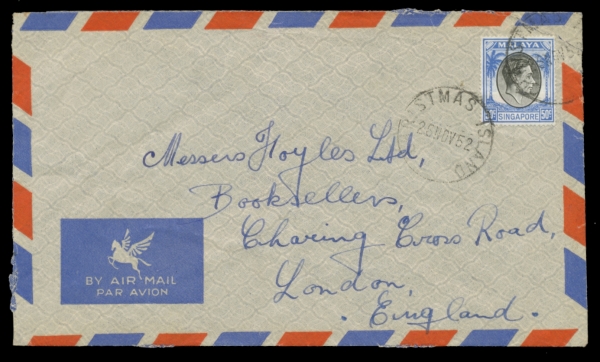 MALAYA
50c SINGAPORE 50c
STMAS ISLAND
26 NOV 52
Messers Foyles Ltd,
Booksellers,
Charing Cross Road,
London,
. England.
BY AIR MAIL
PAR AVION